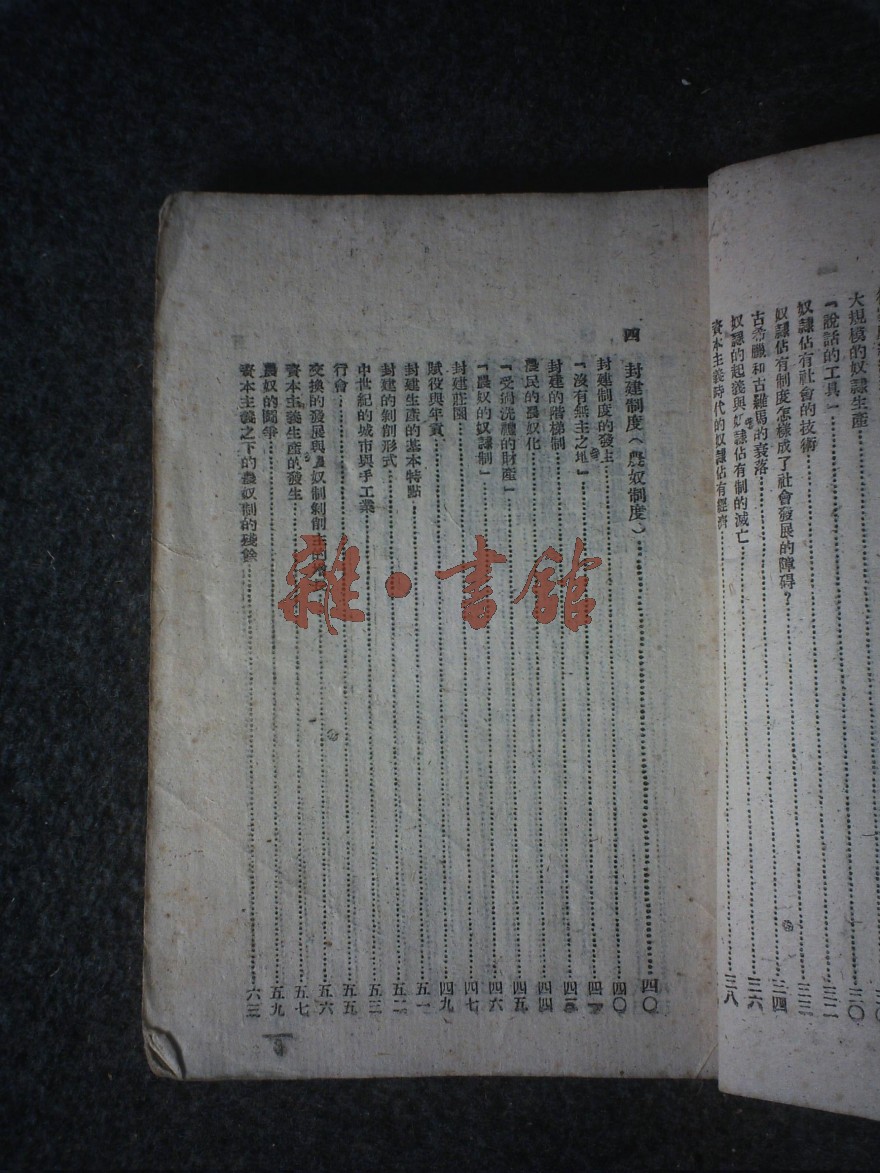 大規模的奴隸生產……三〇
『說話的工具』……三二
奴隸佔有社會的技術……三三
奴隸佔有制度怎樣成了社會發展的障碍？……三四
古希臘和古羅馬的衰落……三六
奴隸的起義與奴隸佔有制的滅亡
資本主義時代的奴隸佔有經濟……三八
四　封建制度（農奴制度）……四〇
封建制度的發生……四〇
『沒有無主之地』……四二
封建的階梯制……四三
農民的農奴化……四四
『受過洗禮的財產』……四五
『農奴的奴隸制』……四六
封建莊園……四七
賦役與年貢……四九
封建生產的基本特點……五一
封建的剝削形式……五二
中世紀的城市與手工業……五三
行會……五五
交換的發展與農奴制剝削……五六
資本主義生產的發生……五七
農奴的鬪爭……五九
資本主義之下的農奴制的殘餘……六三
雜·書館